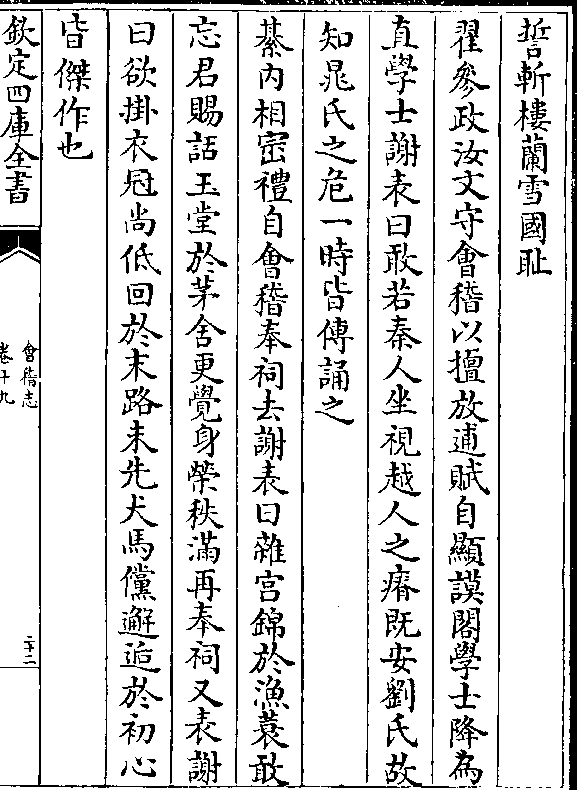 誓斬樓蘭雪國恥
翟參政汝文守會稽以擅放逋賦自顯謨閣學士降為
直學士謝表曰敢若秦人坐視越人之瘠既安劉氏故
知晁氏之危一時皆傳誦之
綦內相崈禮自會稽奉祠去謝表曰雜宮錦於漁蓑敢
忘君賜話玉堂於茅舍更覺身榮秩滿再奉祠又表謝
曰欲掛衣冠尚低回於末路未先犬馬儻邂逅於初心
皆傑作也
欽定四庫全書
會稽志
卷十九
二十二